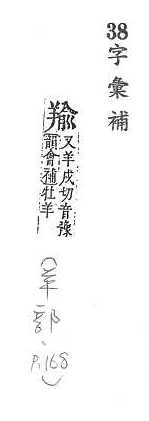 38字彙補
羭
又羊戍切音豫
韻會補牡羊
(羊部、P.168)